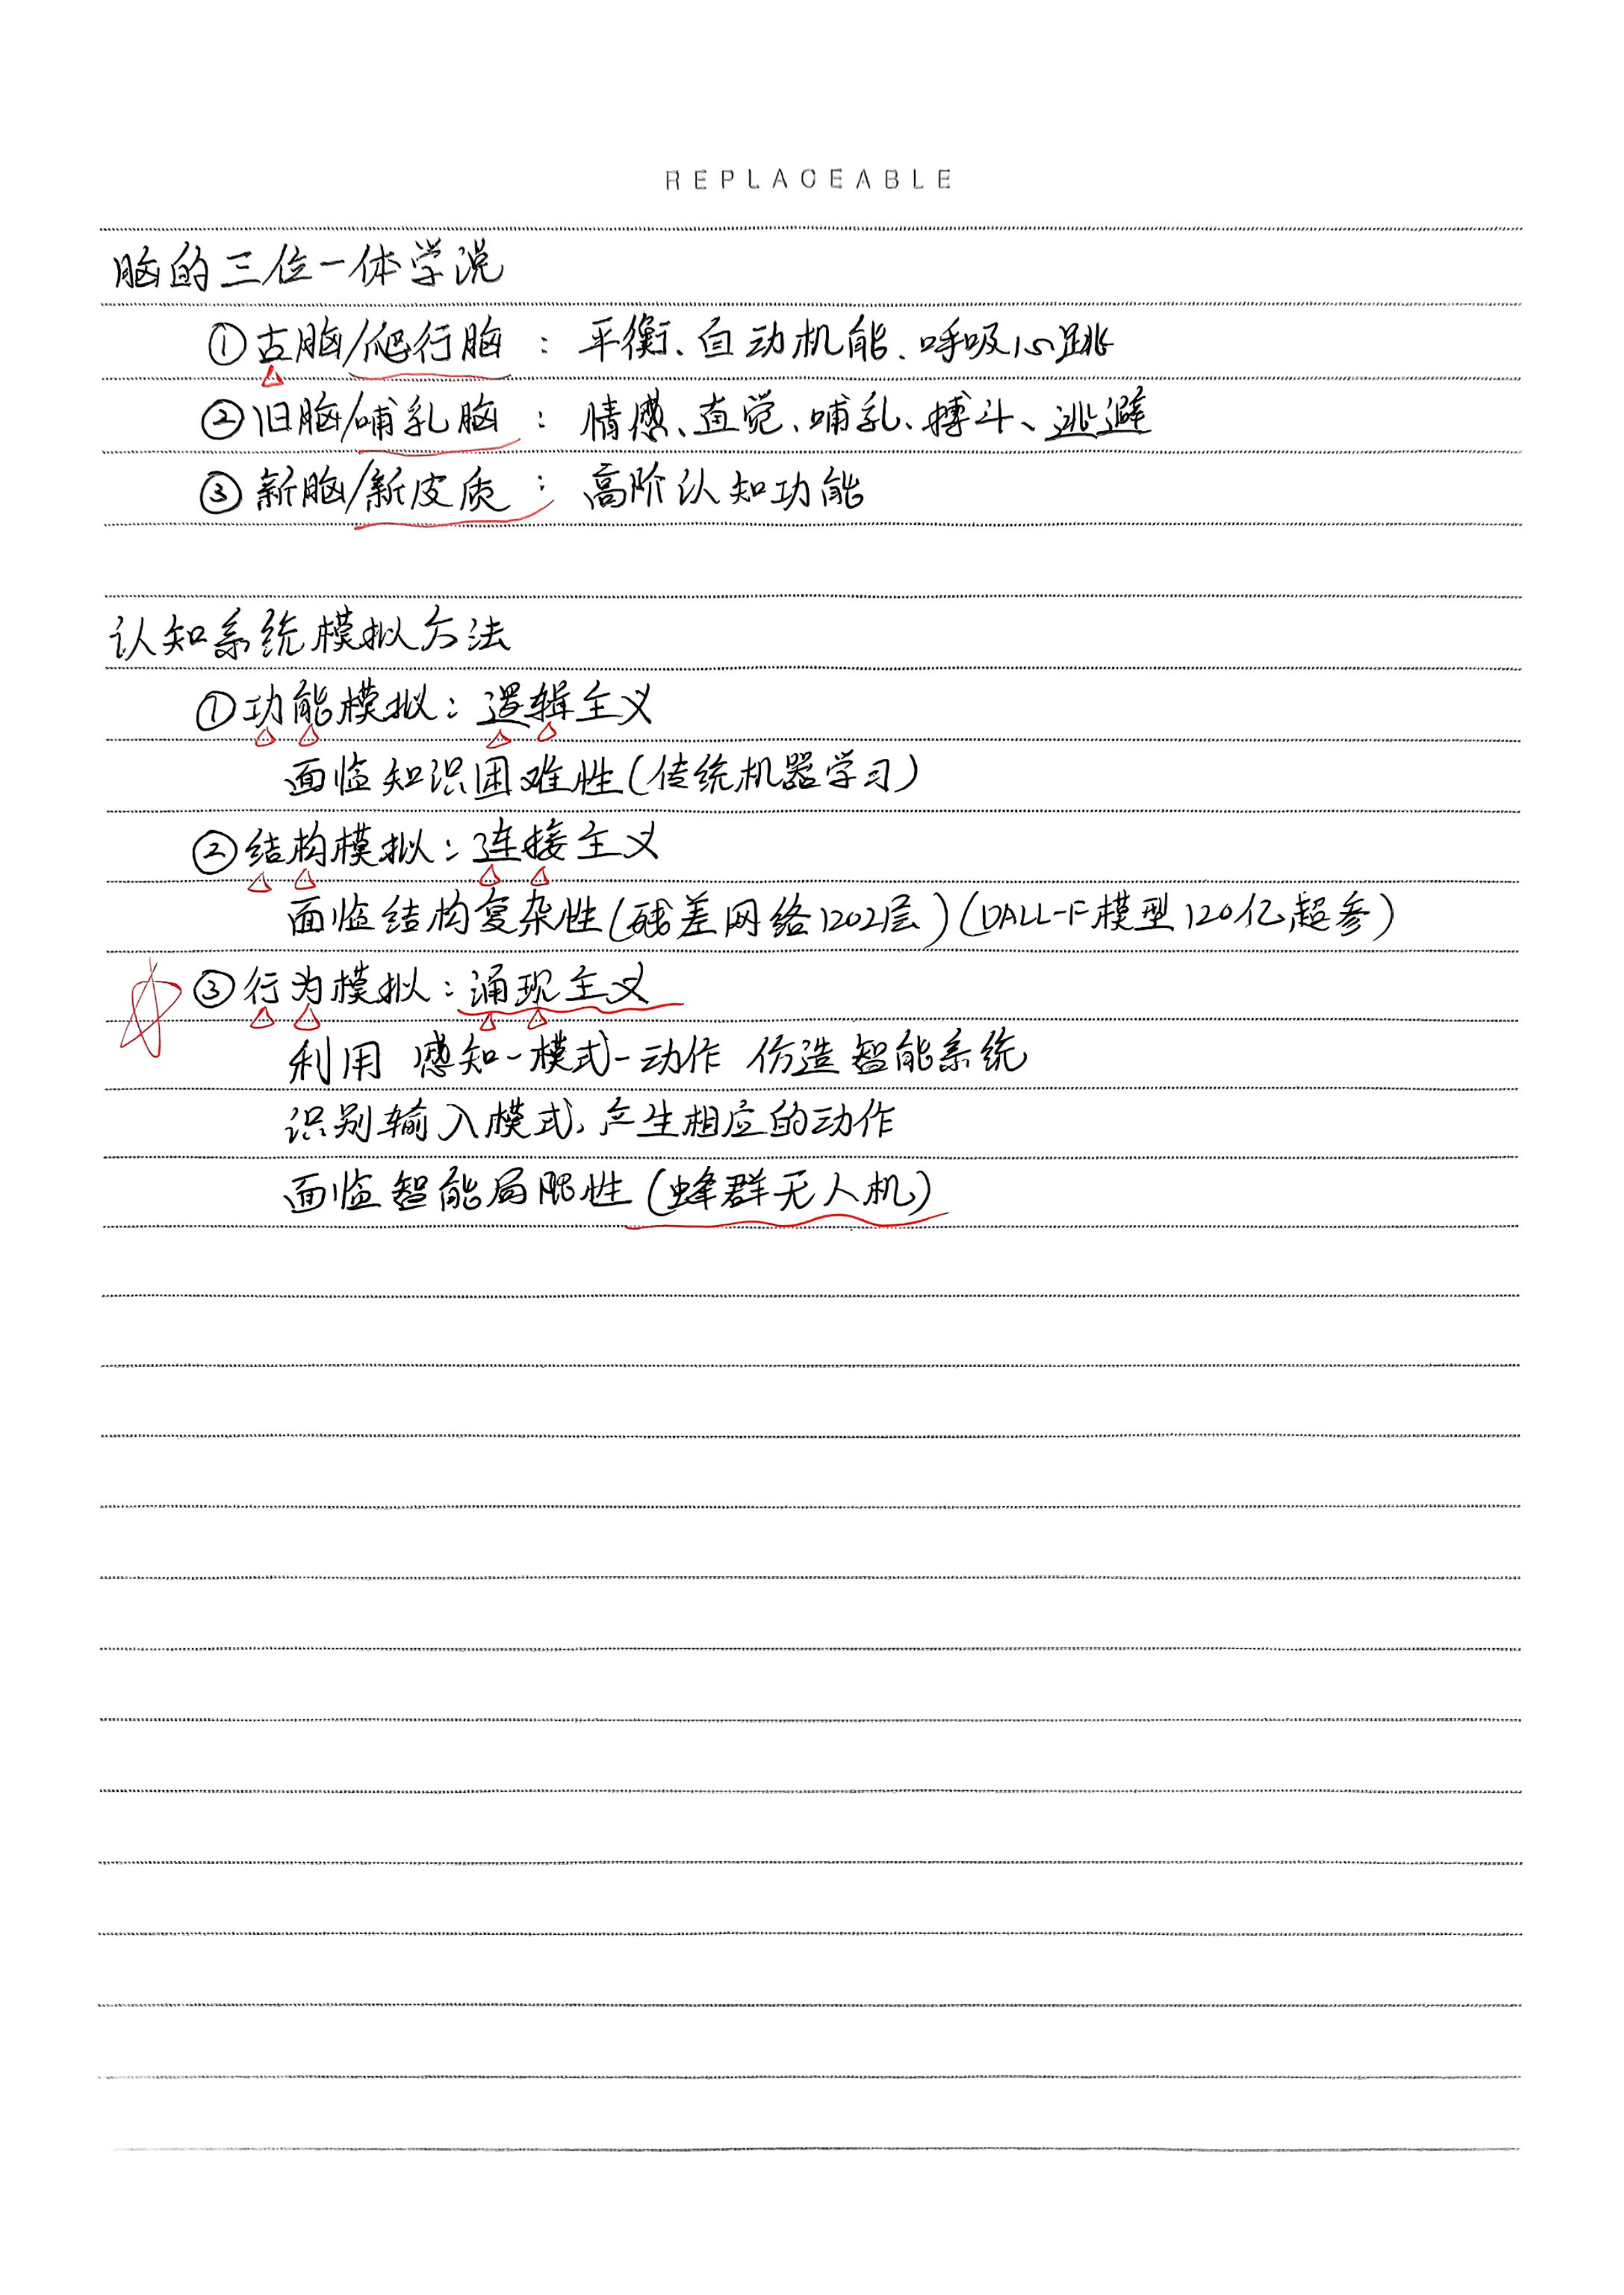 REPLACEABLE
脑的三位一体学说
①古脑/爬行脑：平衡、自动机能、呼吸心跳
②旧脑/哺乳脑：情感、直觉、哺乳、搏斗、逃避
③新脑/新皮质：高阶认知功能
认知系统模拟方法
①功能模拟：逻辑主义
面临知识困难性(传统机器学习)
②结构模拟：连接主义
面临结构复杂性(残差网络1202层)(DALL-E模型120亿超参)
③行为模拟：涌现主义
利用 感知-模式-动作 仿造智能系统
识别输入模式，产生相应的动作
面临智能局限性(蜂群无人机)